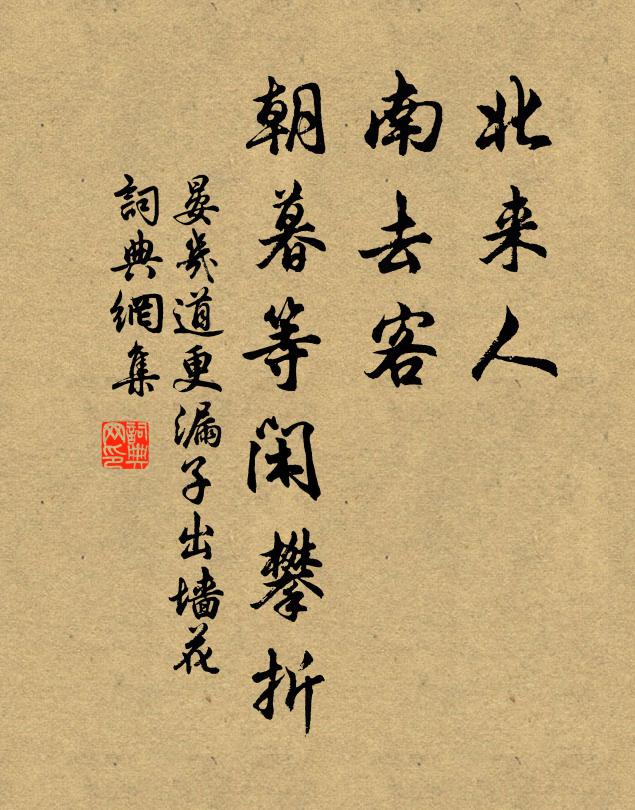 北来人
南去客
朝暮等闲攀折
晏幾道更漏子出墙花
詞典網集
詞典网印